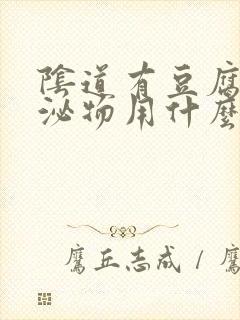 陰道有豆腐
泌物用什麼
鷹丘志成 / 鷹